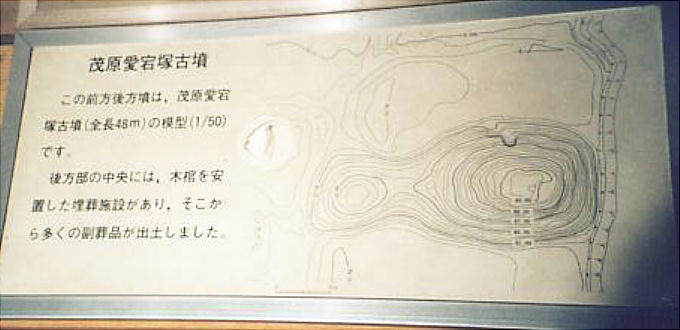 茂原愛宕塚古墳
この前方後方墳は，茂原愛宕
塚古墳(全長48m)の模型(1/50)
です。
後方部の中央には，木棺を安
置した埋葬施設があり，そこか
ら多くの副葬品が出土しました。